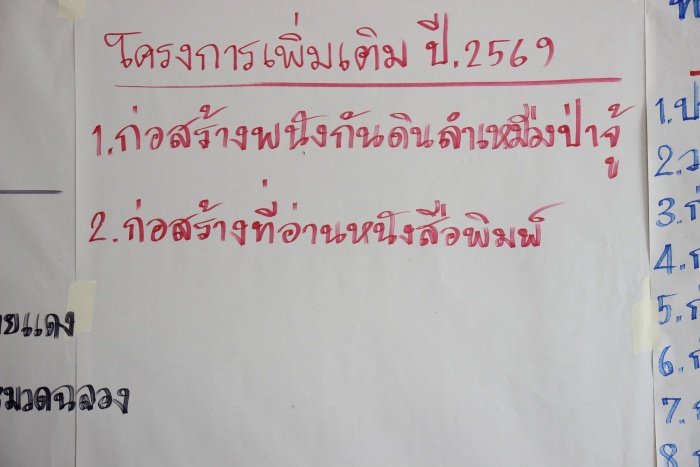 โครงการเพิ่มเติม ปี.2569
1.ก่อสร้างพนังกันดินลำเหมืองป่าจู้
2.ก่อสร้างที่อ่านหนังสือพิมพ์
ยแดง
หมวดฉลวง
1.ป
2.ว
3.ก่
4.ก
5.ก่
6.ก
7.ก
8.